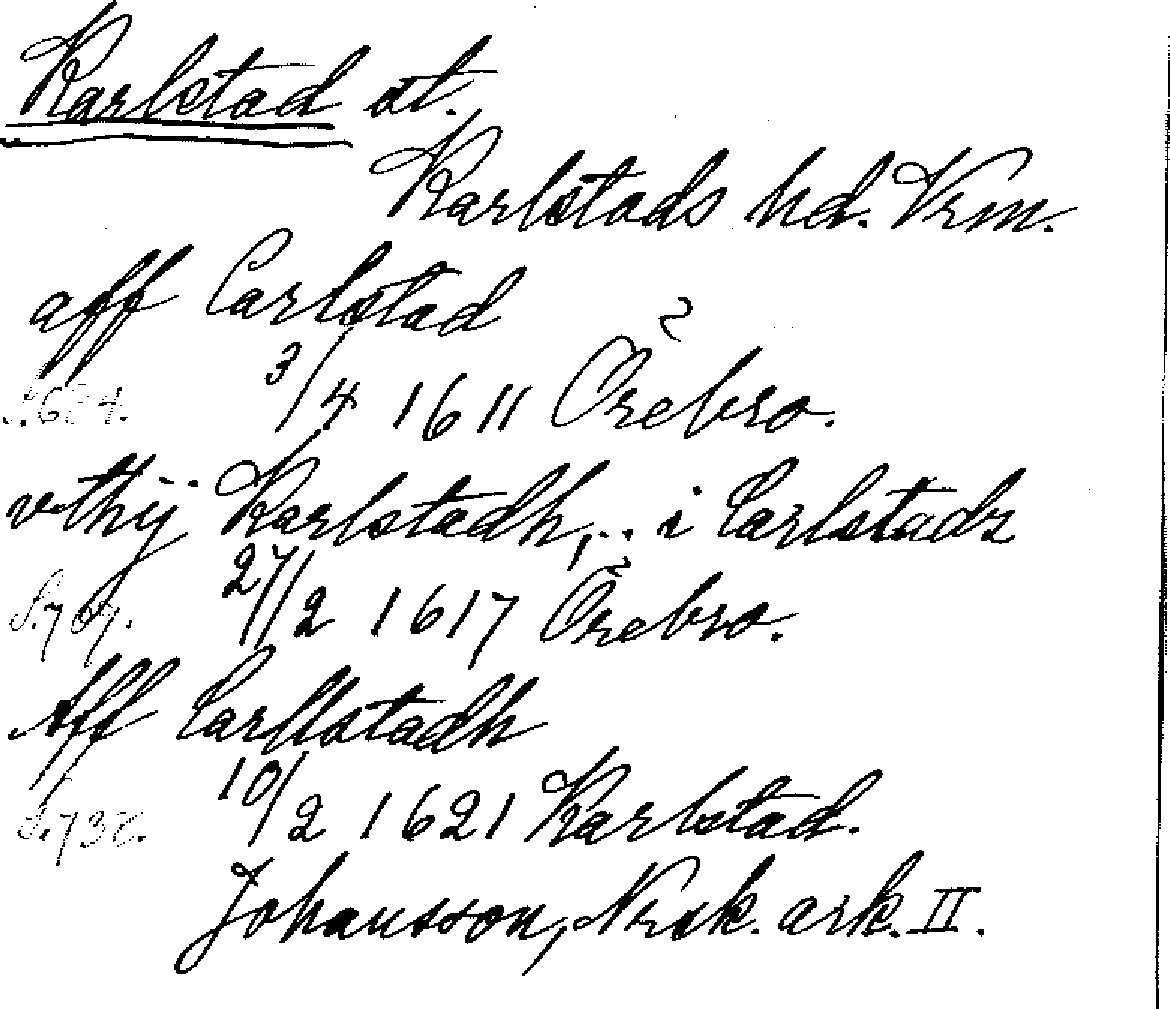 Karlstad st.
Karlstads hd. Vrm.
aff Carlstad
S.684. 3/4 1611 Örebro.
vthij Karlstadh,.. i Carlstadz
S.767. 27/2 1617 Örebro.
Aff Carllstadh
10/2 1621 Karlstad.
Johansson, Nrsk. ark. II.